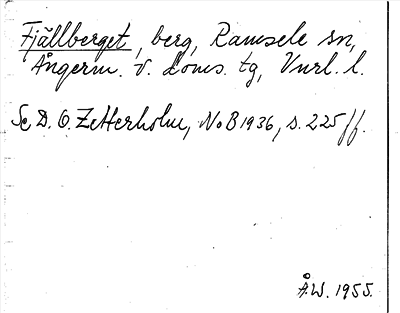 Fjällberget, berg, Ramsele sn,
Ångerm. v. doms. tg, Vnrl. l.
Se D. O. Zetterholm, NoB 1936, s. 225 ff.
Å.W. 1955.